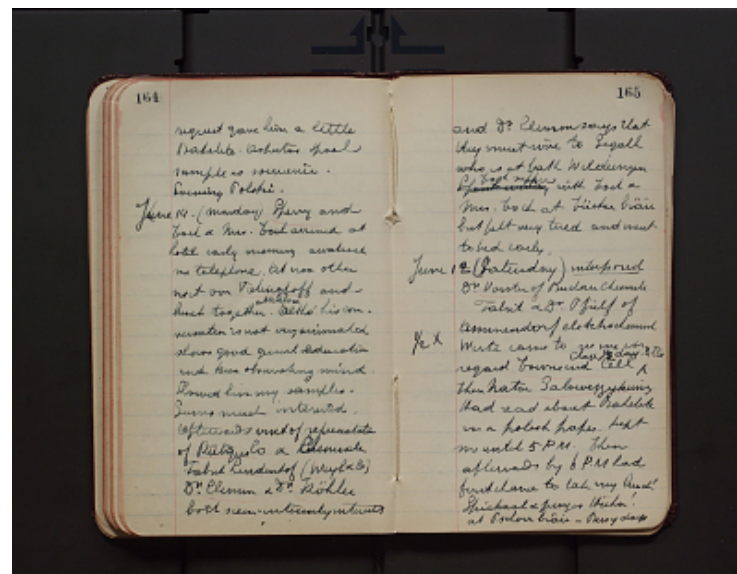 164
request gave him a little
Bakelite - asbestos spool
sample as souvenir.
Evening Polski.
June 14. (Monday) Sperry and
Koch & Mrs. Koch arrived at
hotel early morning
no telephone. At noon other
and
lunch together. Altho his con-
versation is not very animated
shows good general education
and keen observing mind.
Showed him my samples.
Seems much interested.
Afterwards visit of representatives
of & Chemische
Fabrik Lindenhof (Weyl & Co)
Dr. Clemm & Dr. Köhler
both seem intensely interested
165
and Dr. Clemm says that
they must wire to Segall
who is at bath Wildungen
took supper
with Koch &
Mrs. Koch at Bücher bräu
but felt very tired and went
to bed early.
June 12 (Saturday) interposed
Dr. of Budau Chemische
Fabrik & Dr. Pfulf of
Ammendorf elektrochemical
½ X
Werke came to see me in
regard Townsend Cell
then Nator
Had read about Bakelite
in a polish paper. Kept
me until 5 P.M. Then
afterwards by 6 P.M had
first chance to take my lunch!
at Pschorr bräu - Busy days